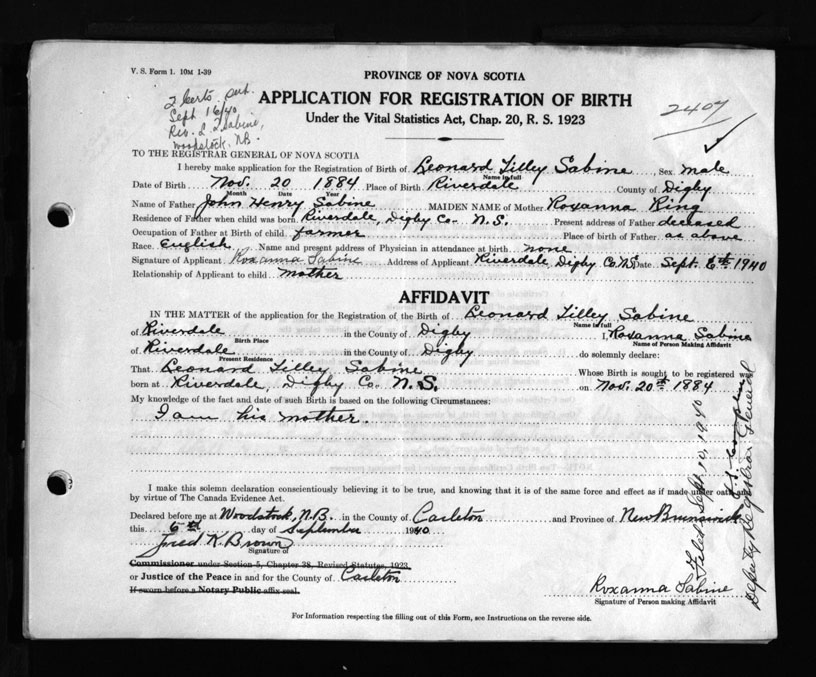 V. S. Form 1. 10M 1-39
PROVINCE OF NOVA SCOTIA
2 Certs.
Sept 16/40
Rev. L T Sabine,
Woodstock, N.B.
APPLICATION FOR REGISTRATION OF BIRTH
2407
Under the Vital Statistics Act, Chap. 20, R. S. 1923
TO THE REGISTRAR GENERAL OF NOVA SCOTIA
I hereby make application for the Registration of Birth of Leonard Tilley Sabine Sex male
Name in full
Date of Birth Nov. 20 1884 Place of Birth Riverdale County of Digby
Month Date Year
Name of Father John Henry Sabine MAIDEN NAME of Mother Roxanna Ring
Residence of Father when child was born Riverdale, Digby Co. N.S. Present address of Father deceased
Occupation of Father at Birth of child farmer Place of birth of Father as above
Race English Name and present address of Physician in attendance at birth none
Signature of Applicant Roxanna Sabine Address of Applicant Riverdale, Digby Co N.S. Date Sept. 6th 1940
Relationship of Applicant to child mother
AFFIDAVIT
IN THE MATTER of the application for the Registration of the Birth of Leonard Tilley Sabine
Name in full
of Riverdale in the County of Digby I, Roxanna Sabine
Birth Place Name of Person Making Affidavit
of Riverdale in the County of Digby do solemnly declare:
Present Residence
That Leonard Tilley Sabine Whose Birth is sought to be registered was
born at Riverdale, Digby Co. N.S. on Nov. 20th 1884
My knowledge of the fact and date of such Birth is based on the following Circumstances:
I am his mother.
I make this solemn declaration conscientiously believing it to be true, and knowing that it is of the same force and effect as if made under oath and
by virtue of The Canada Evidence Act.
Declared before me at Woodstock, N.B. in the County of Carleton and Province of New Brunswick
this 6th day of September 1940
Fred K. Brown
Signature of
Commissioner under Section 5, Chapter 38, Revised Statutes, 1923
or Justice of the Peace in and for the County of Carleton
If sworn before a Notary Public affix seal.
Roxanna Sabine
Signature of Person making Affidavit
For Information respecting the filling out of this Form, see Instructions on the reverse side.
Filed Sept. 10, 1940
Deputy Registrar General